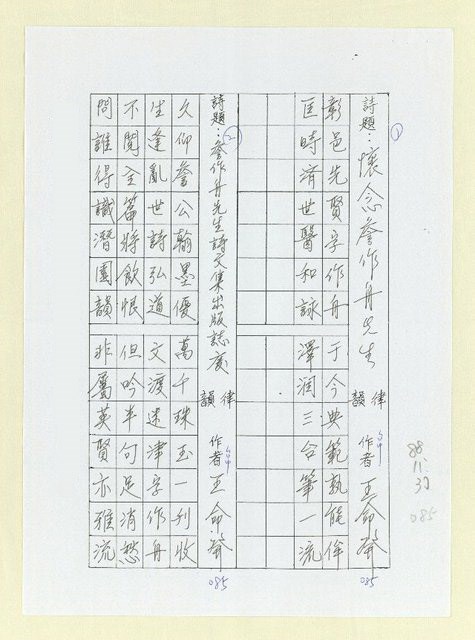 ①
詩題：懷念詹作舟先生 律韻 作者 台中 王命發 085
彰邑先賢字作舟 于今典範孰能侔
匡時濟世醫和詠 澤润三台筆一流
②
詩題：詹作舟先生詩文集出版誌慶 律韻 作者 台中 王命發 085
久仰詹公翰墨優 萬千珠玉一刋收
生逢亂世詩弘道 文渡迷津字作舟
不閱全篇將飲恨 但吟半句足消愁
問誰得識潛園韻 非屬英賢亦雅流
88.
11.
30
085